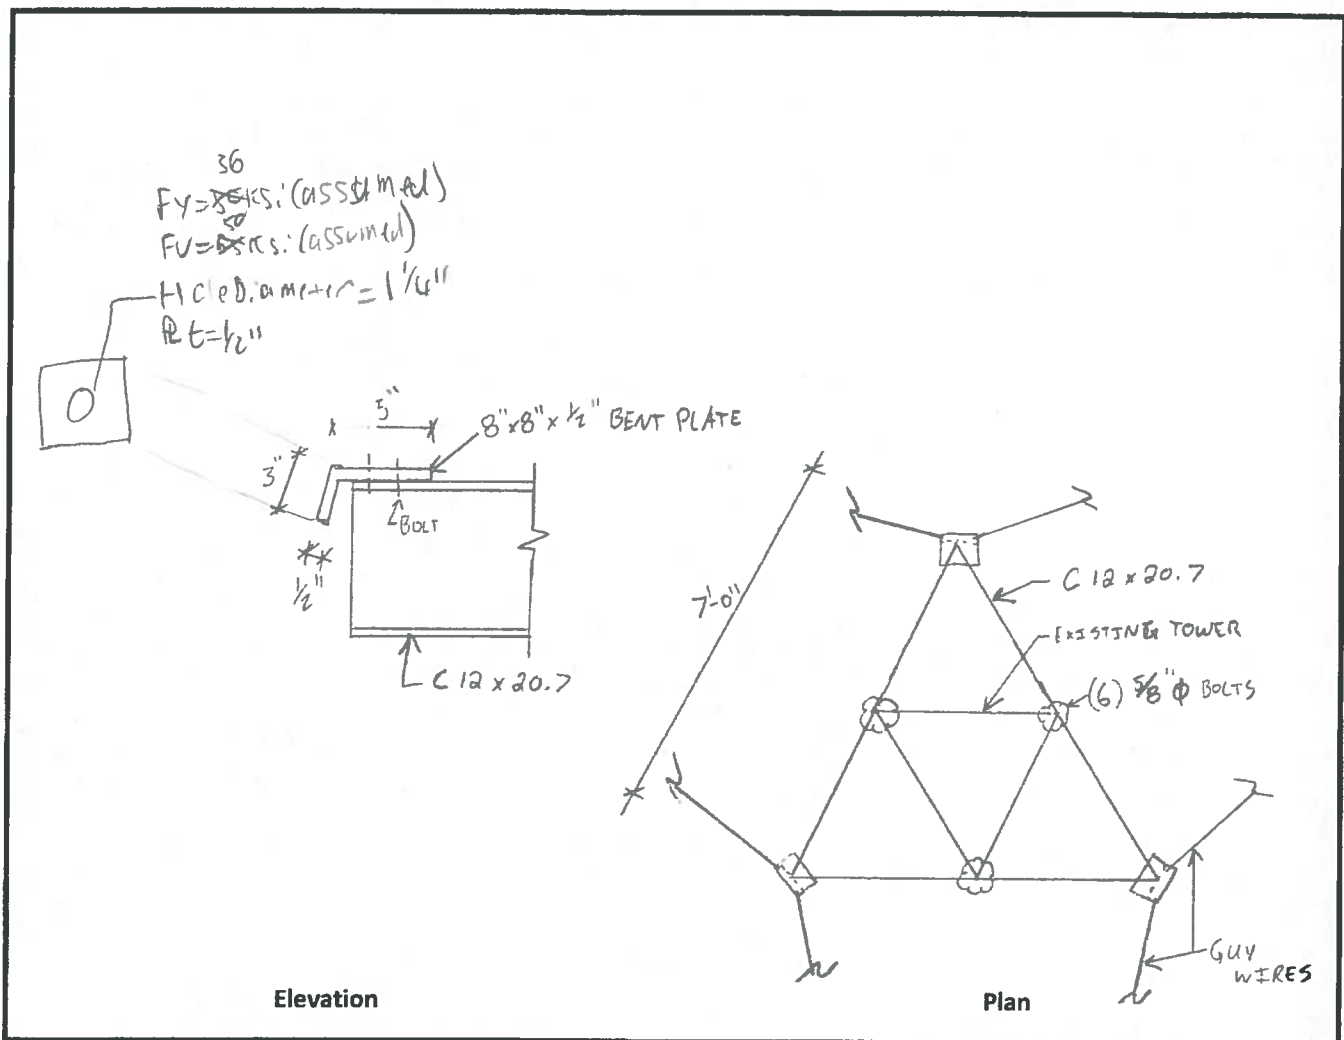 36
Fy=ksi (assumed)
50
FU=ksi (assumed)
Hole Diameter = 1 1/4"
PL t=1/2"
5"
8"x8"x 1/2" BENT PLATE
3"
BOLT
1/2"
C 12 x 20.7
7'-0"
C 12 x 20.7
EXISTING TOWER
(6) 5/8" Φ BOLTS
GUY
WIRES
Elevation
Plan